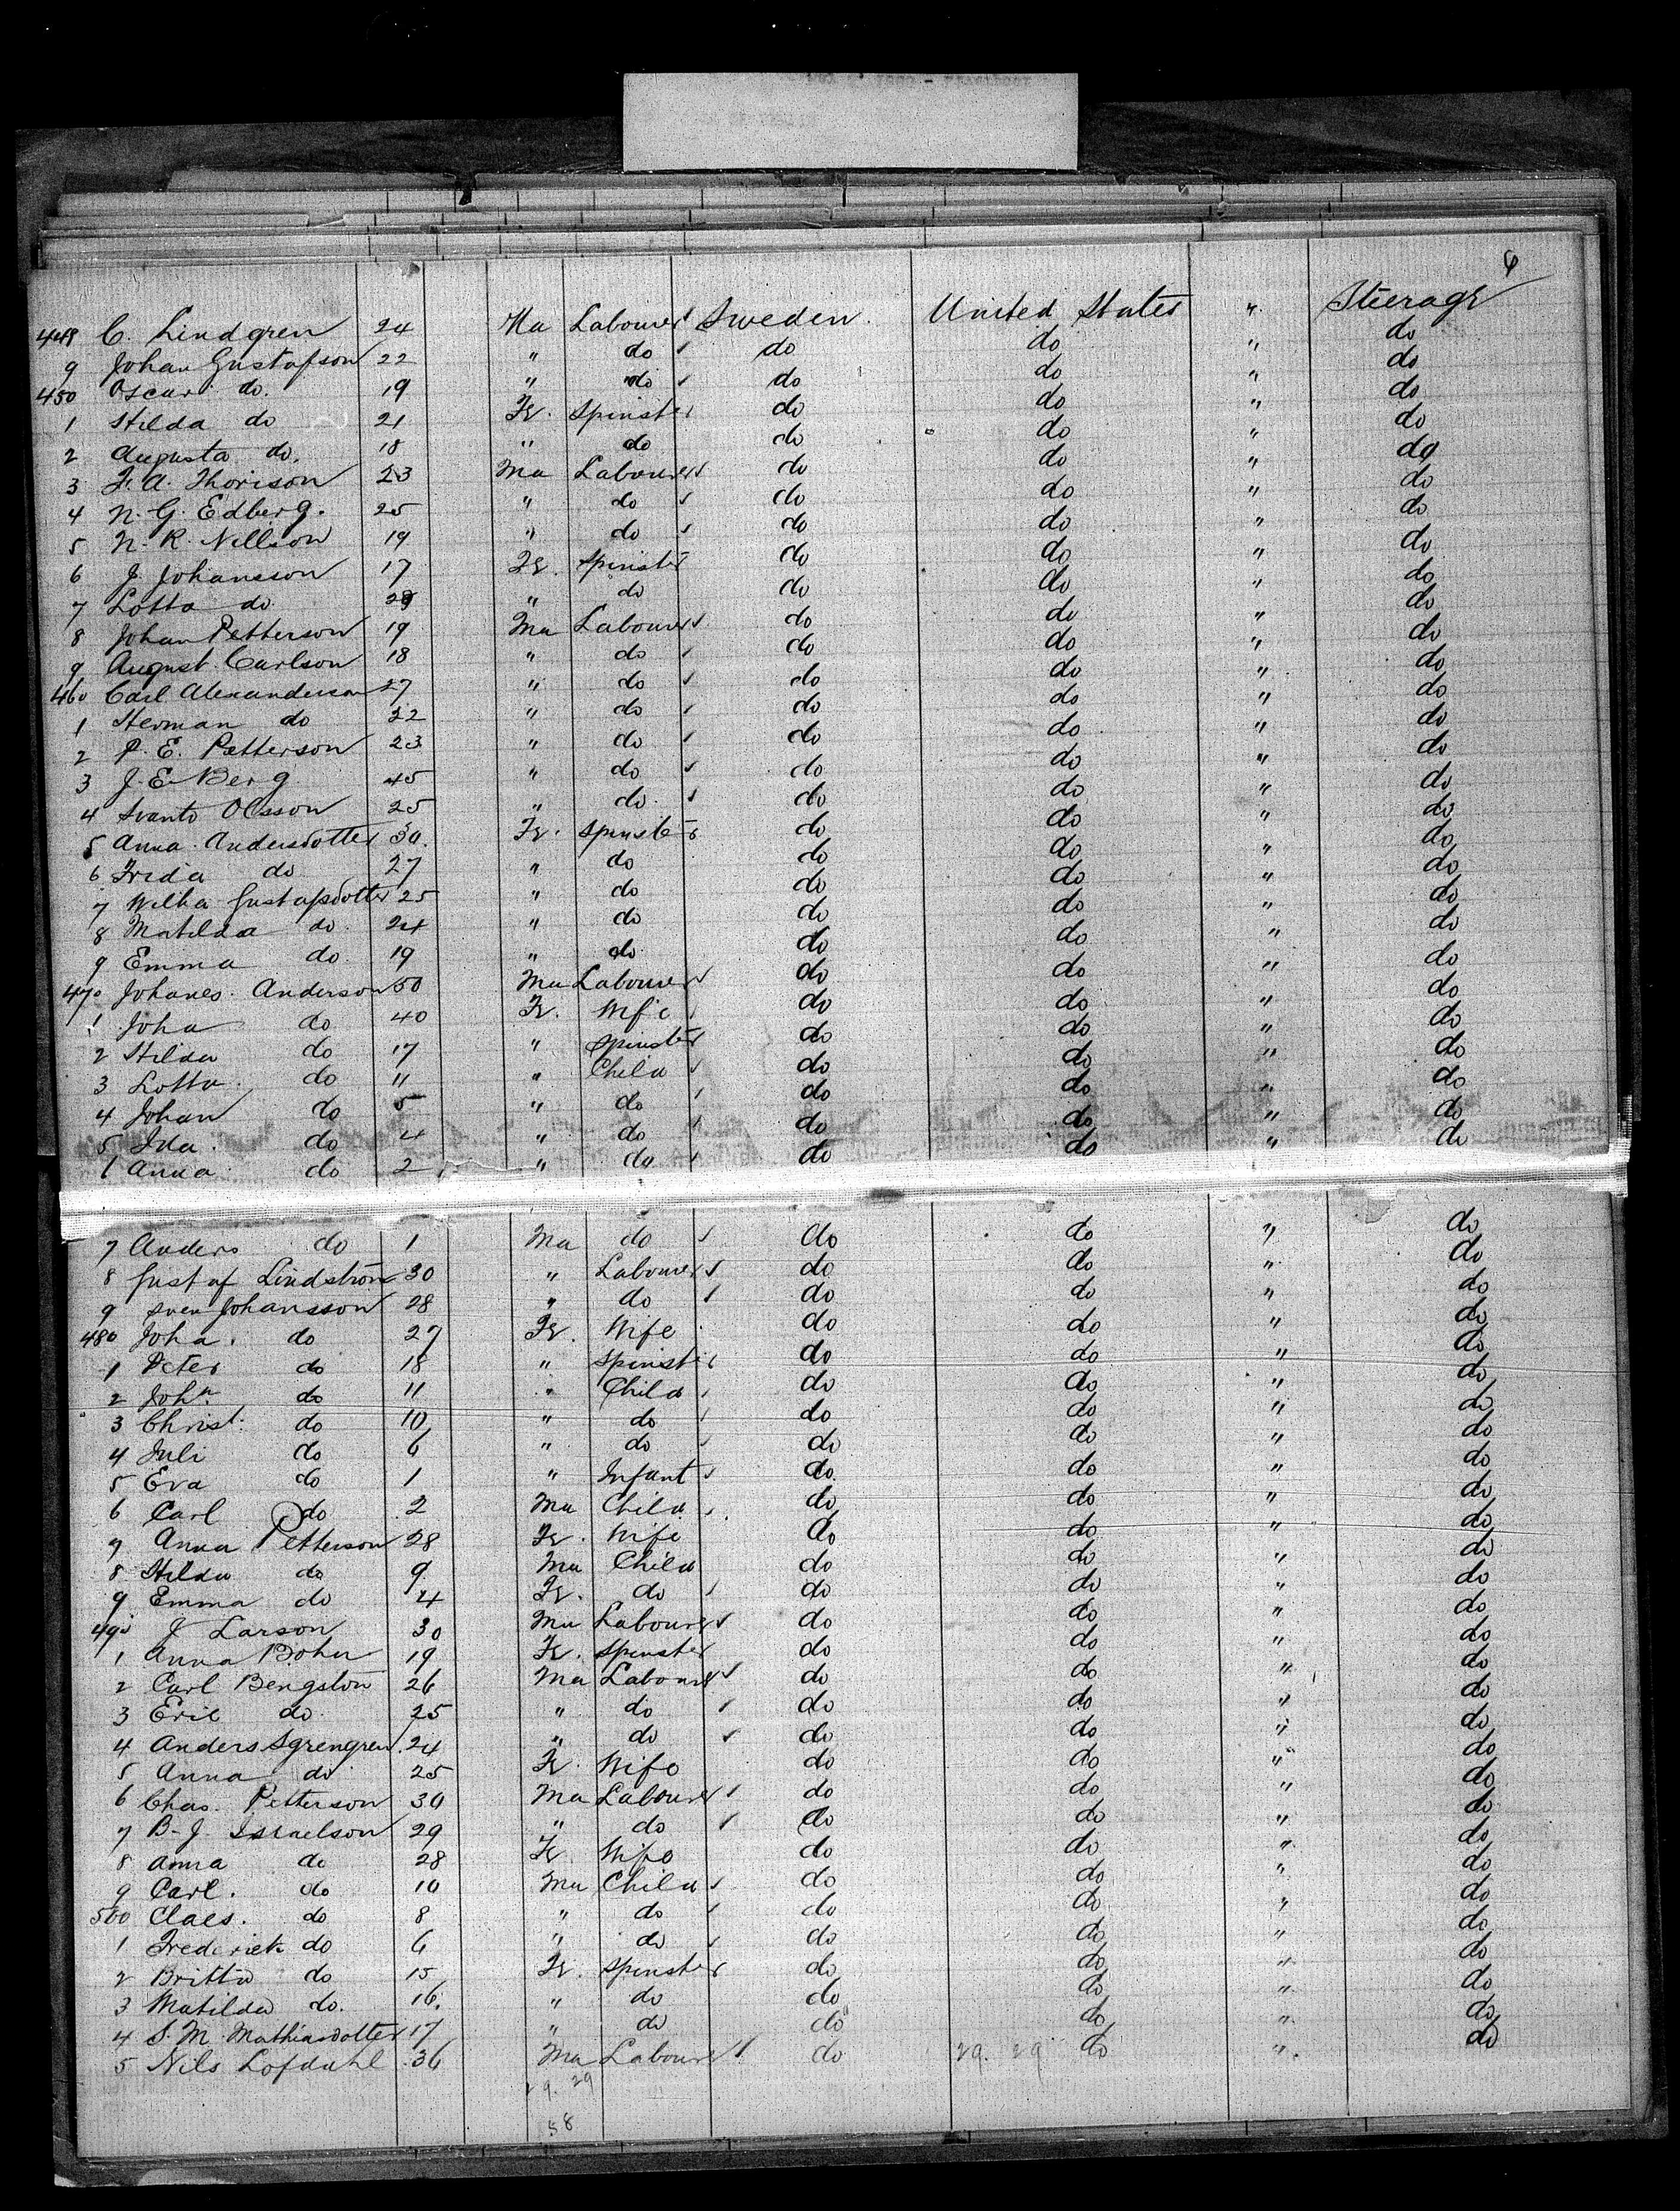 6
448 C. Lindgren 24 Ma Labourer Sweden United States " Steerage
9 Johan Gustafson 22 " do do do " do
450 Oscar do. 19 " do do do " do
1 Hilda do 21 Fe. Spinster do do " do
2 Augusta do. 18 " do do do " do
3 F. A. Thorison 23 Ma Labourer do do " do
4 N. G. Edberg. 25 " do do do " do
5 N. R. Nellson 19 " do do do " do
6 J. Johansson 17 Fe. Spinster do do " do
7 Lotta do " do do do " do
8 Johan Petterson 19 Ma Labourer do do " do
9 August Carlson 18 " do do do " do
460 Carl Alexanderson 27 " do do do " do
1 Herman do 22 " do do do " do
2 P. E. Petterson 23 " do do do " do
3 J. E. Berg 45 " do do do " do
4 Svante Olsson 25 " do do do " do
5 Anna Andersdotter 30. Fe. Spinster do do " do
6 Frida do 27 " do do do " do
7 Wilha Gustafsdotter 25 " do do do " do
8 Matilda do. 24 " do do do " do
9 Emma do 19 " do do do " do
470 Johanes. Anderson 50 Ma Labourer do do " do
1 Joha do 40 Fe. Wife do do " do
2 Hilda do 17 " Spinster do do " do
3 Lotta. do 11 " Child do do " do
4 Johan do 5 " do do do " do
5 Ida. do 4 " do do do " do
6 Anna do 2 " do do do " do
7 Anders do 1 Ma do do do " do
8 Gustaf Lindstrom 30 " Labourer do do " do
9 Sven Johansson 28 " do do do " do
480 Joha. do 27 Fe. Wife do do " do
1 Peter do 18 " Spinster do do " do
2 Joha. do 11 " Child do do " do
3 Christ. do 10 " do do do " do
4 Juli do 6 " do do do " do
5 Eva do 1 " Infant do do " do
6 Carl do 2 Ma Child do do " do
7 Anna Petterson 28 Fe. Wife do do " do
8 Hilda do 9 Ma Child do do " do
9 Emma do 4 Fe. do do do " do
490 J Larson 30 Ma Labourer do do " do
1 Anna 19 Fe. Spinster do do " do
2 Carl Bengston 26 Ma Labourer do do " do
3 Eric do 25 " do do do " do
4 Anders Sgrengren 24 " do do do " do
5 Anna do 25 Fe. Wife do do " do
6 Chas. Petterson 30 Ma Labourer do do " do
7 B. J. Israelson 29 " do do do " do
8 Anna do 28 Fe. Wife do do " do
9 Carl. do 10 Ma Child do do " do
500 Claes. do 8 " do do do " do
1 Frederick do 6 " do do do " do
2 Britta do 15 Fe. Spinster do do " do
3 Matilda do. 16. " do do do " do
4 S. M. Mathiasdotter 17 " do do do " do
5 Nils Lofdahl 36 Ma Labourer do 29. 29 do " do
29. 29
58